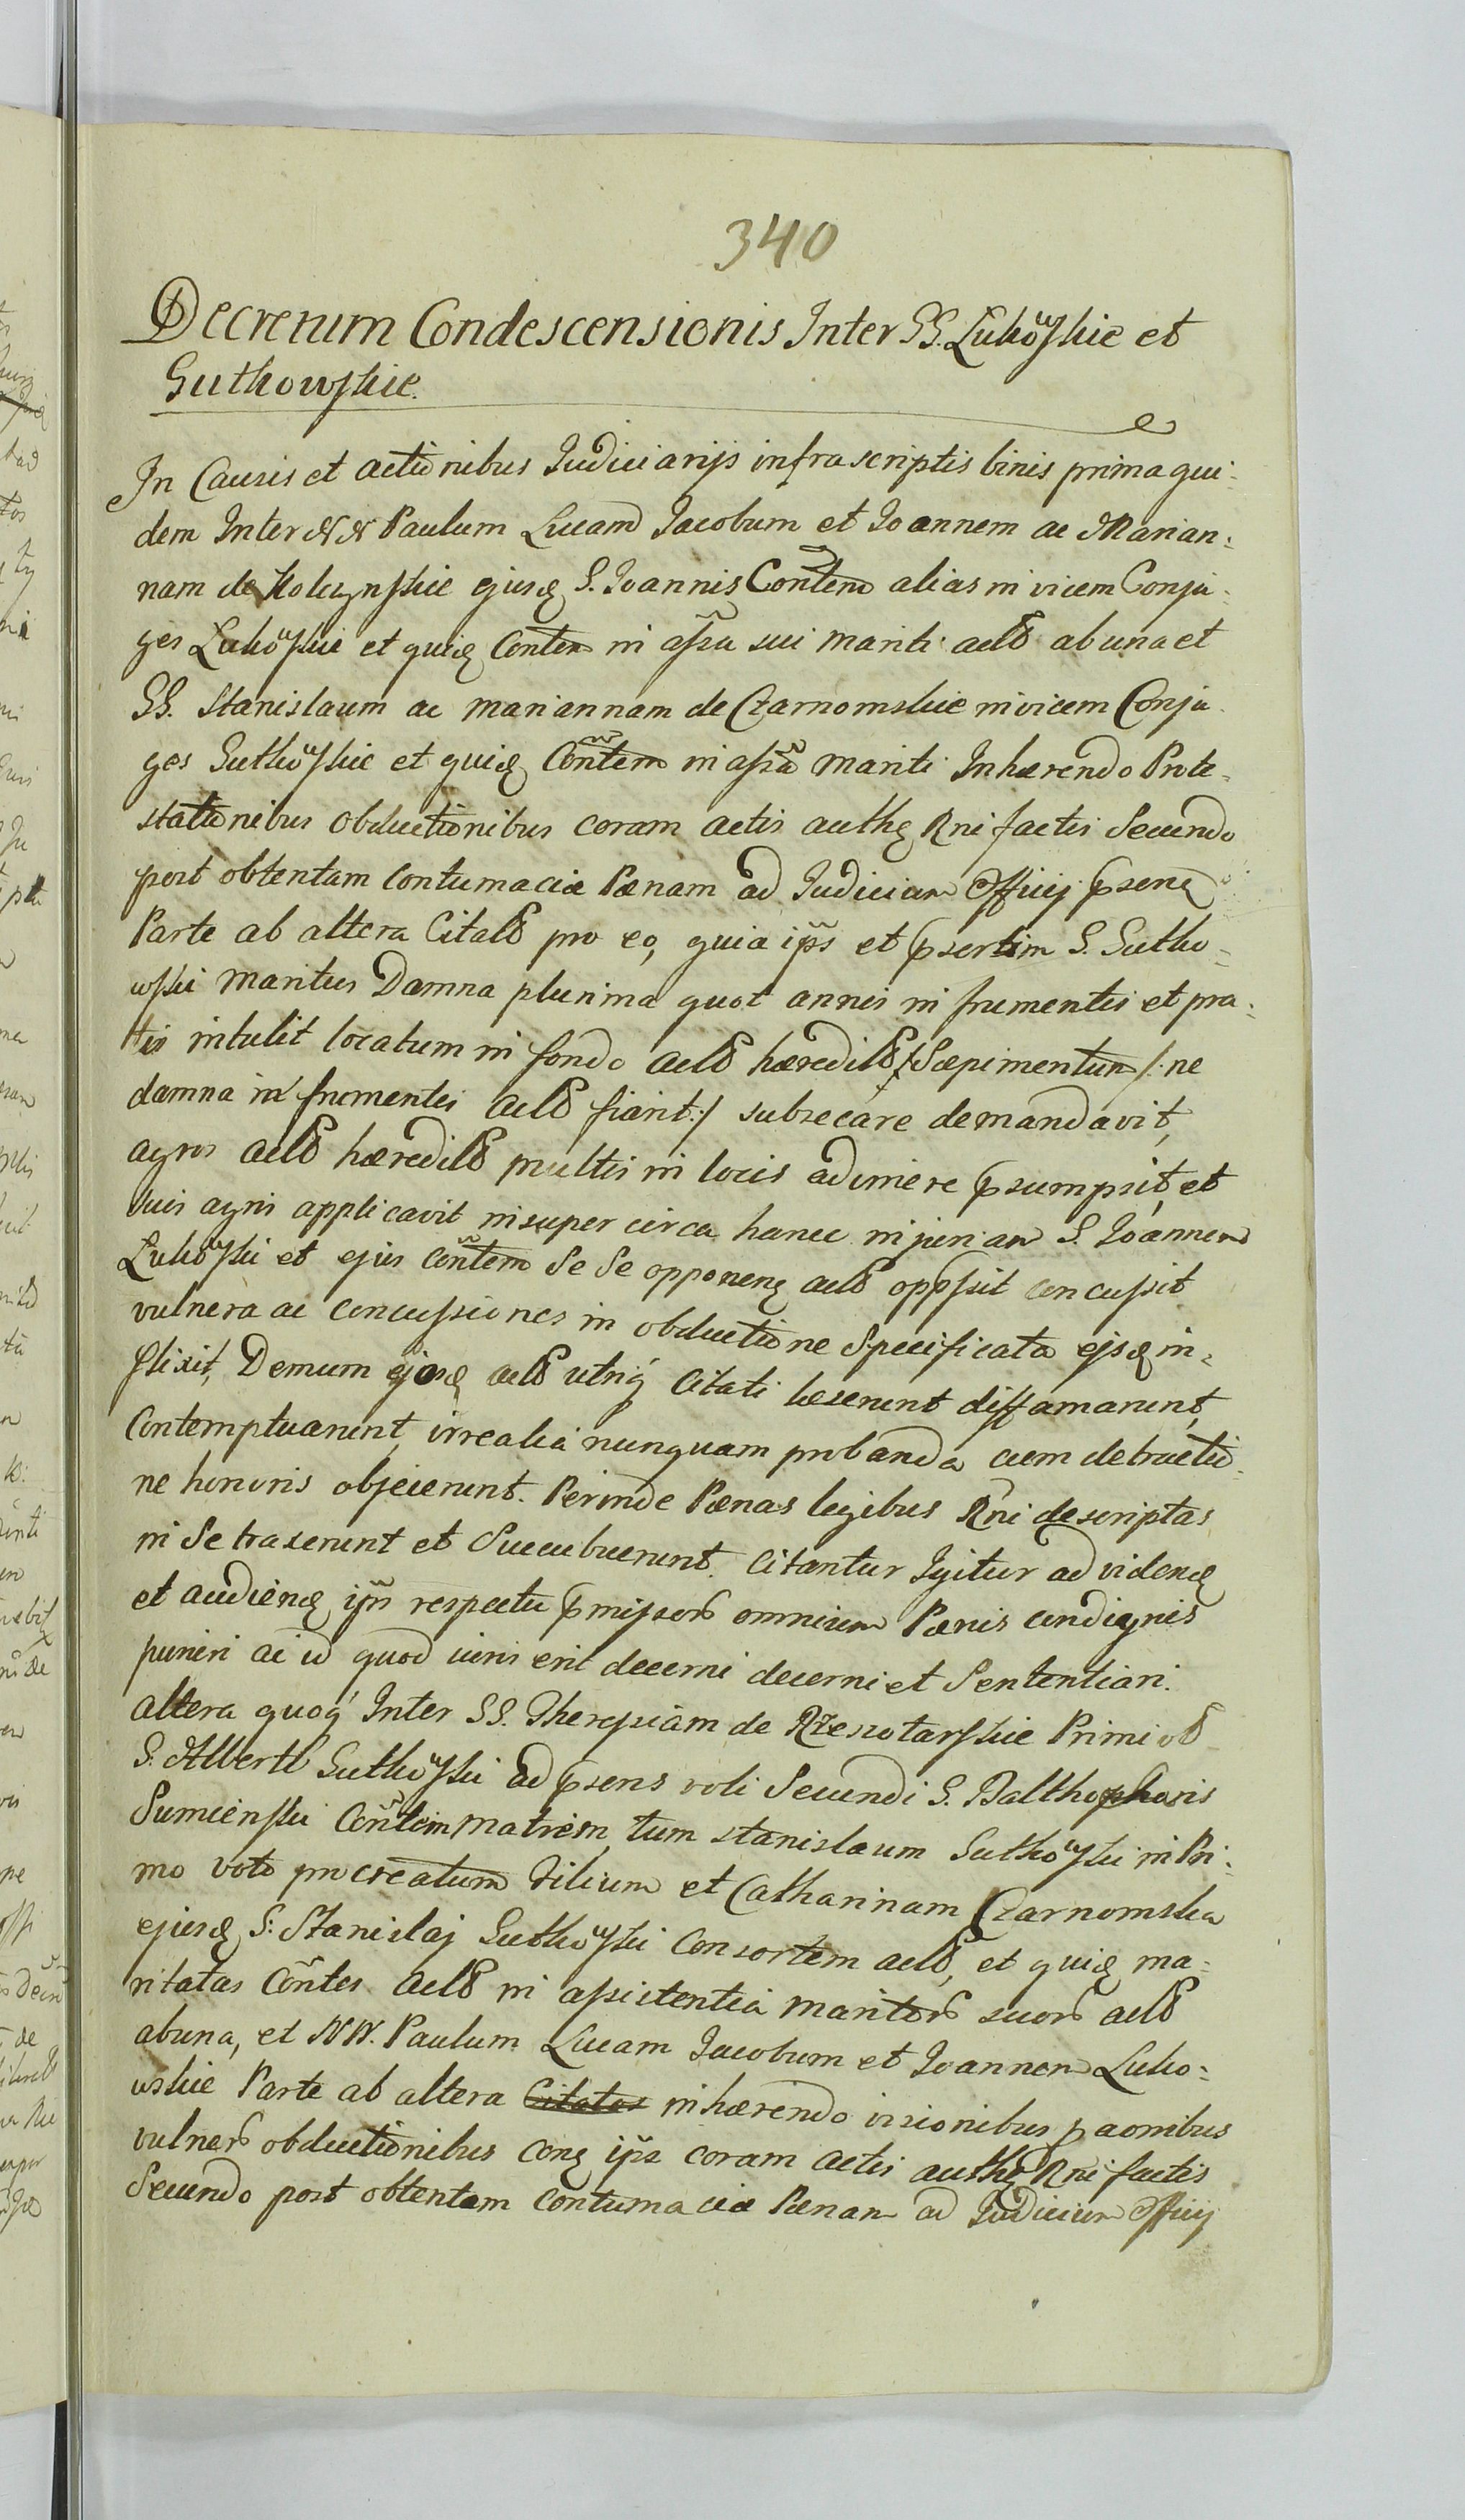 340
Decretum Condescensionis Inter SS. Lukowskie et
Gutkowskie.
In Causis et actionibus Judiciarijs infrascriptis binis prima qui:
dem Inter NN Paulum Lucam Jacobum et Joannem ac Marian:
nam de Kolczynskie ejusq S. Joannis Contem alias in vicem Conju:
ges Lukowskie et quidq Contem in assa sui mariti actt ab una et
SS. Stanislaum ac Mariannam de Czarnomskie invicem Conju
ges Gutkowskie et quidq Contem in assa mariti Inhærendo Prote-
stationibus obductionibus coram actis authq Rni factis Secundo
post obtentam Contumaciæ Pænam ad Judicium Officij pseng
Parte ab altera Citatt pro eo, quia ipse et psertim S. Gutko-
wski maritus Damna plurima quot annis in frumentis et pra:
tis intulit locatum in fondo actt hæreditt Sæpimentum /: ne
damna in frumentis actt fiant :/ subsecare demandavit,
agros actt hæreditt multis in locis adimere psumpsit, et
suis agris applicavit insuper circa hanc injuriam S. Joannem
Lukowski et ejus Contem Se Se opponeng actt oppssit concussit
vulnera ac concussiones in obductione Specificata ejsq in-
flixit, Demum ejosq actt utriq Citati læserunt diffamarunt,
Contemptuarunt, irrealia nunquam probanda cum detractio
ne honoris objecierunt. Perinde Pænas legibus Rni descriptas
in Se traxerunt et Succubuerunt. Citantur Igitur ad videndq
et audiendq ipss respectu pmissor omnium Pænis condignis
puniri ac id quod iuris erit decerni decerni et Sententiari.
Altera quoq Inter SS. Theresiam de Rzeszotarskie Primi vo
S. Alberti Gutkowski ad psens voti Secundi S. Balthasaris
Sumienski Contem matrem, tum Stanislaum Gutkowski in Pri:
mo voto procreatum Filium et Catharinam Czarnomska
ejusq S: Stanislaj Gutkowski Consortem actt, et quidq ma:
ritatas Contes actt in assistentia maritor suor actt
abuna, et NN. Paulum Lucam Jacobum et Joannem Luko:
wskie Parte ab altera Citatos inhærendo visionibus paonibus
vulner obductionibus cong ipss coram actis authq Rni factis
Secundo post obtentam Contumaciæ Pænam ad Judicium Officij